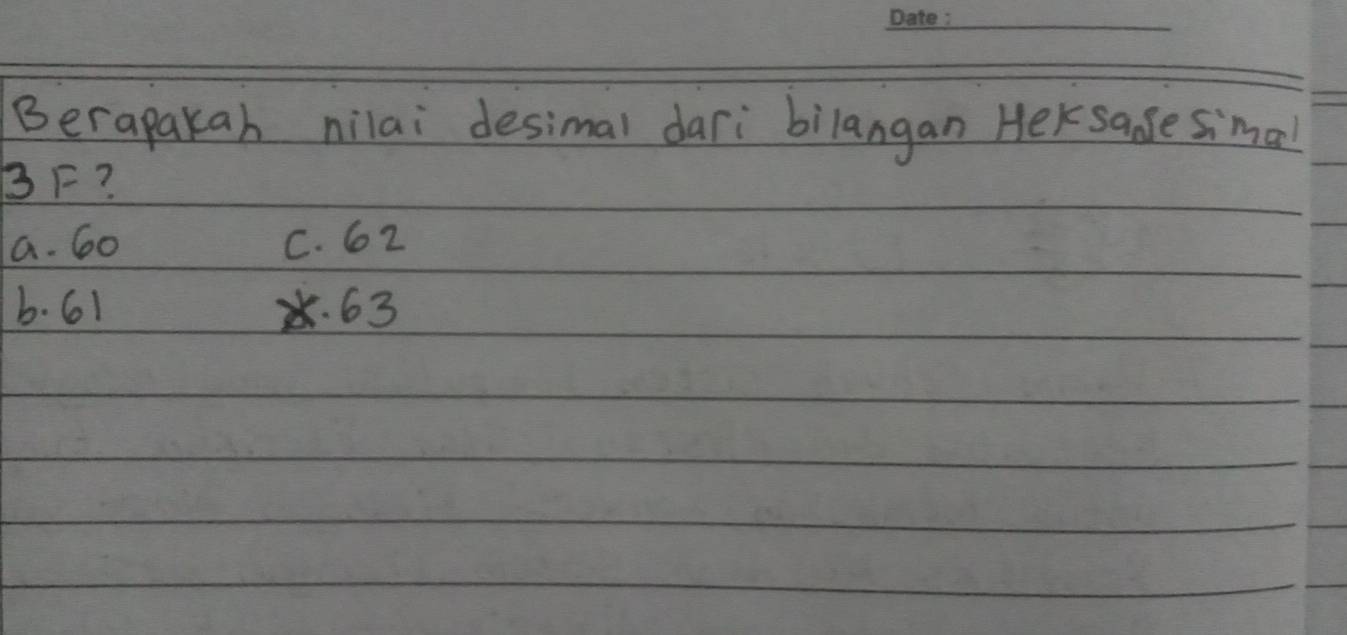 Date :
Berapakah nilai desimal dari bilangan Heksadesimal
3F?
a. 60 c. 62
b. 61 x. 63